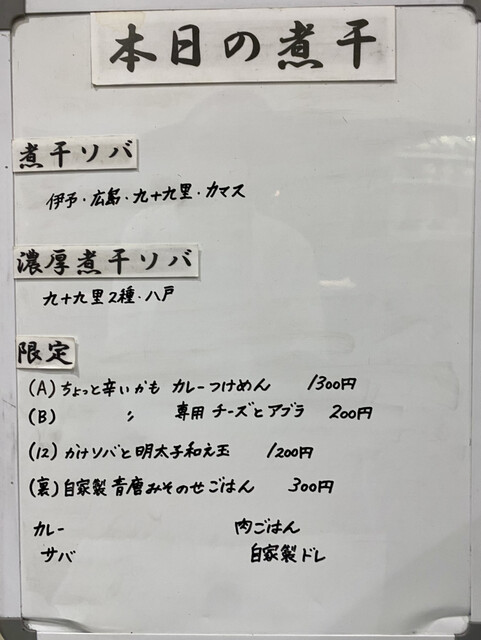 本日の煮干
煮干ソバ
伊予・広島・九十九里・カマス
濃厚煮干ソバ
九十九里2種・八戸
限定
(A) ちょっと辛いかも カレーつけめん 1300円
(B) 〃 専用チーズとアブラ 200円
(12) かけソバと明太子和え玉 1200円
(裏) 自家製青唐みそのせごはん 300円
カレー 肉ごはん
サバ 自家製ドレ